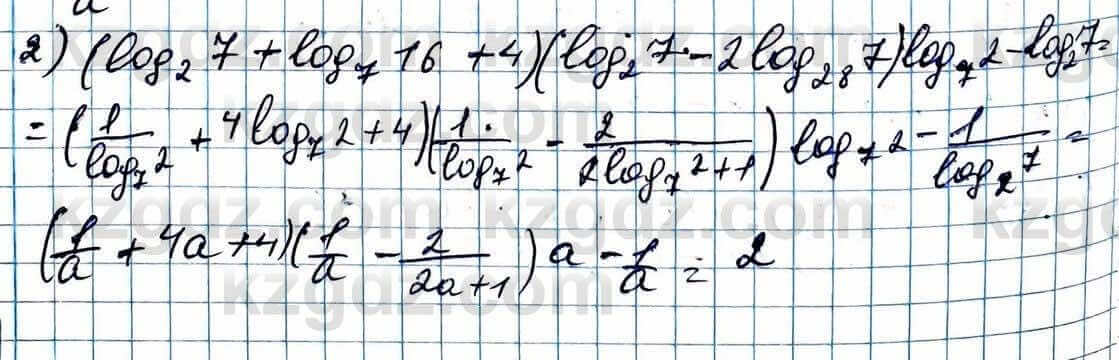 2) (log₂7 + log₇16 + 4)(log₂7 - 2log₂₈7)log₇2 - log₂7 =
= (1/log₇2 + 4log₇2 + 4)(1/log₇2 - 2/(2log₇2+1)) log₇2 - 1/log₂7 =
(1/a + 4a + 4)(1/a - 2/(2a+1)) a - 1/a = 2
kzgdz.com kzgdz.com kzgdz.com